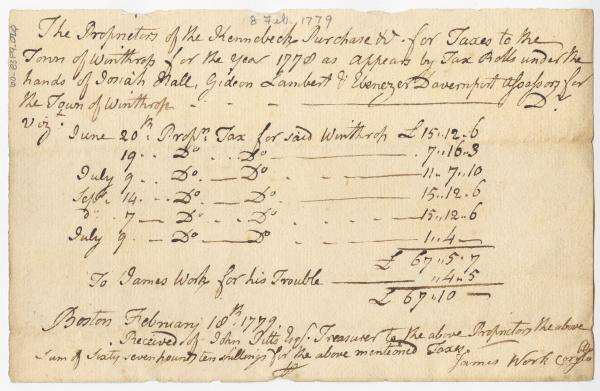 8 Feb. 1779
The Proprietors of the Kennebeck Purchase &c. for Taxes to the
Town of Winthrop for the Year 1778 as appears by Tax Rolls under the
hands of Josiah Hall, Gideon Lambert & Ebenezer Davenport Assessors for
the Town of Winthrop Dr
Vizt
June 20th Propns Tax for said Winthrop £ 15..12..6
19.. Do.. Do 7..16..3
July 9.. Do Do 11..7..10
Septr 14.. Do.. Do 15..12..6
do 7 Do.. Do 15..12..6
July 9.. Do Do 1..4
£ 67..5..7
To James Work for his Trouble ..4..5
£ 67..10
Boston February 18th 1779
Received of John Pitts Esqr. Treasurer to the above Proprietors the above
Sum of Sixty seven pounds ten shillings for the above mentioned Taxes
James Work